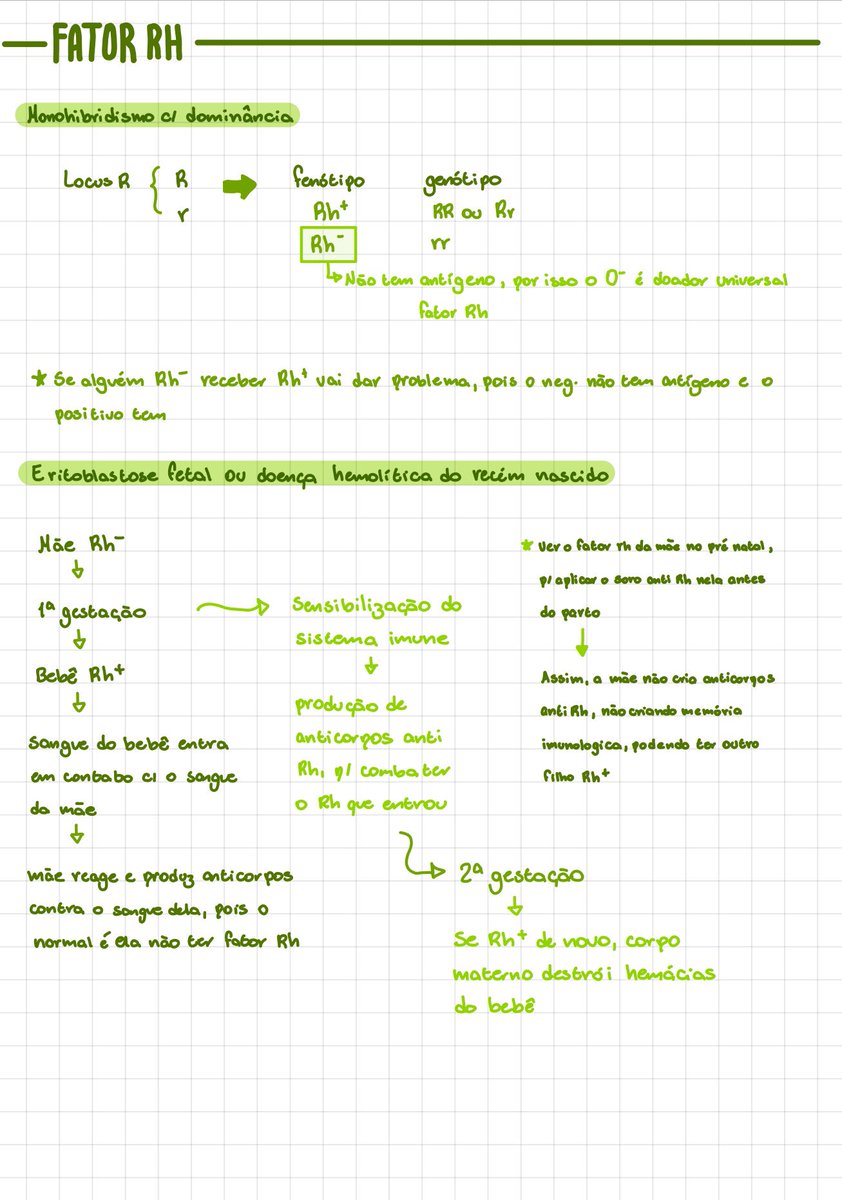 FATOR RH
Monohibridismo c/ dominância
Locus R { R
r
fenótipo genótipo
Rh⁺ RR ou Rr
Rh⁻ rr
Não tem antígeno, por isso o O⁻ é doador universal
fator Rh
* Se alguém Rh⁻ receber Rh⁺ vai dar problema, pois o neg. não tem antígeno e o
positivo tem
Eritoblastose fetal ou doença hemolítica do recém nascido
Mãe Rh⁻
1ª gestação
Bebê Rh⁺
sangue do bebê entra
em contabo c/ o sangue
da mãe
mãe reage e produz anticorpos
contra o sangue dela, pois o
normal é ela não ter fator Rh
Sensibilização do
sistema imune
produção de
anticorpos anti
Rh, p/ combater
o Rh que entrou
2ª gestação
Se Rh⁺ de novo, corpo
materno destrói hemácias
do bebê
* Ver o fator rh da mãe no pré natal,
p/ aplicar o soro anti Rh nela antes
do parto
Assim, a mãe não cria anticorpos
anti Rh, não criando memória
imunologica, podendo ter outro
filho Rh⁺